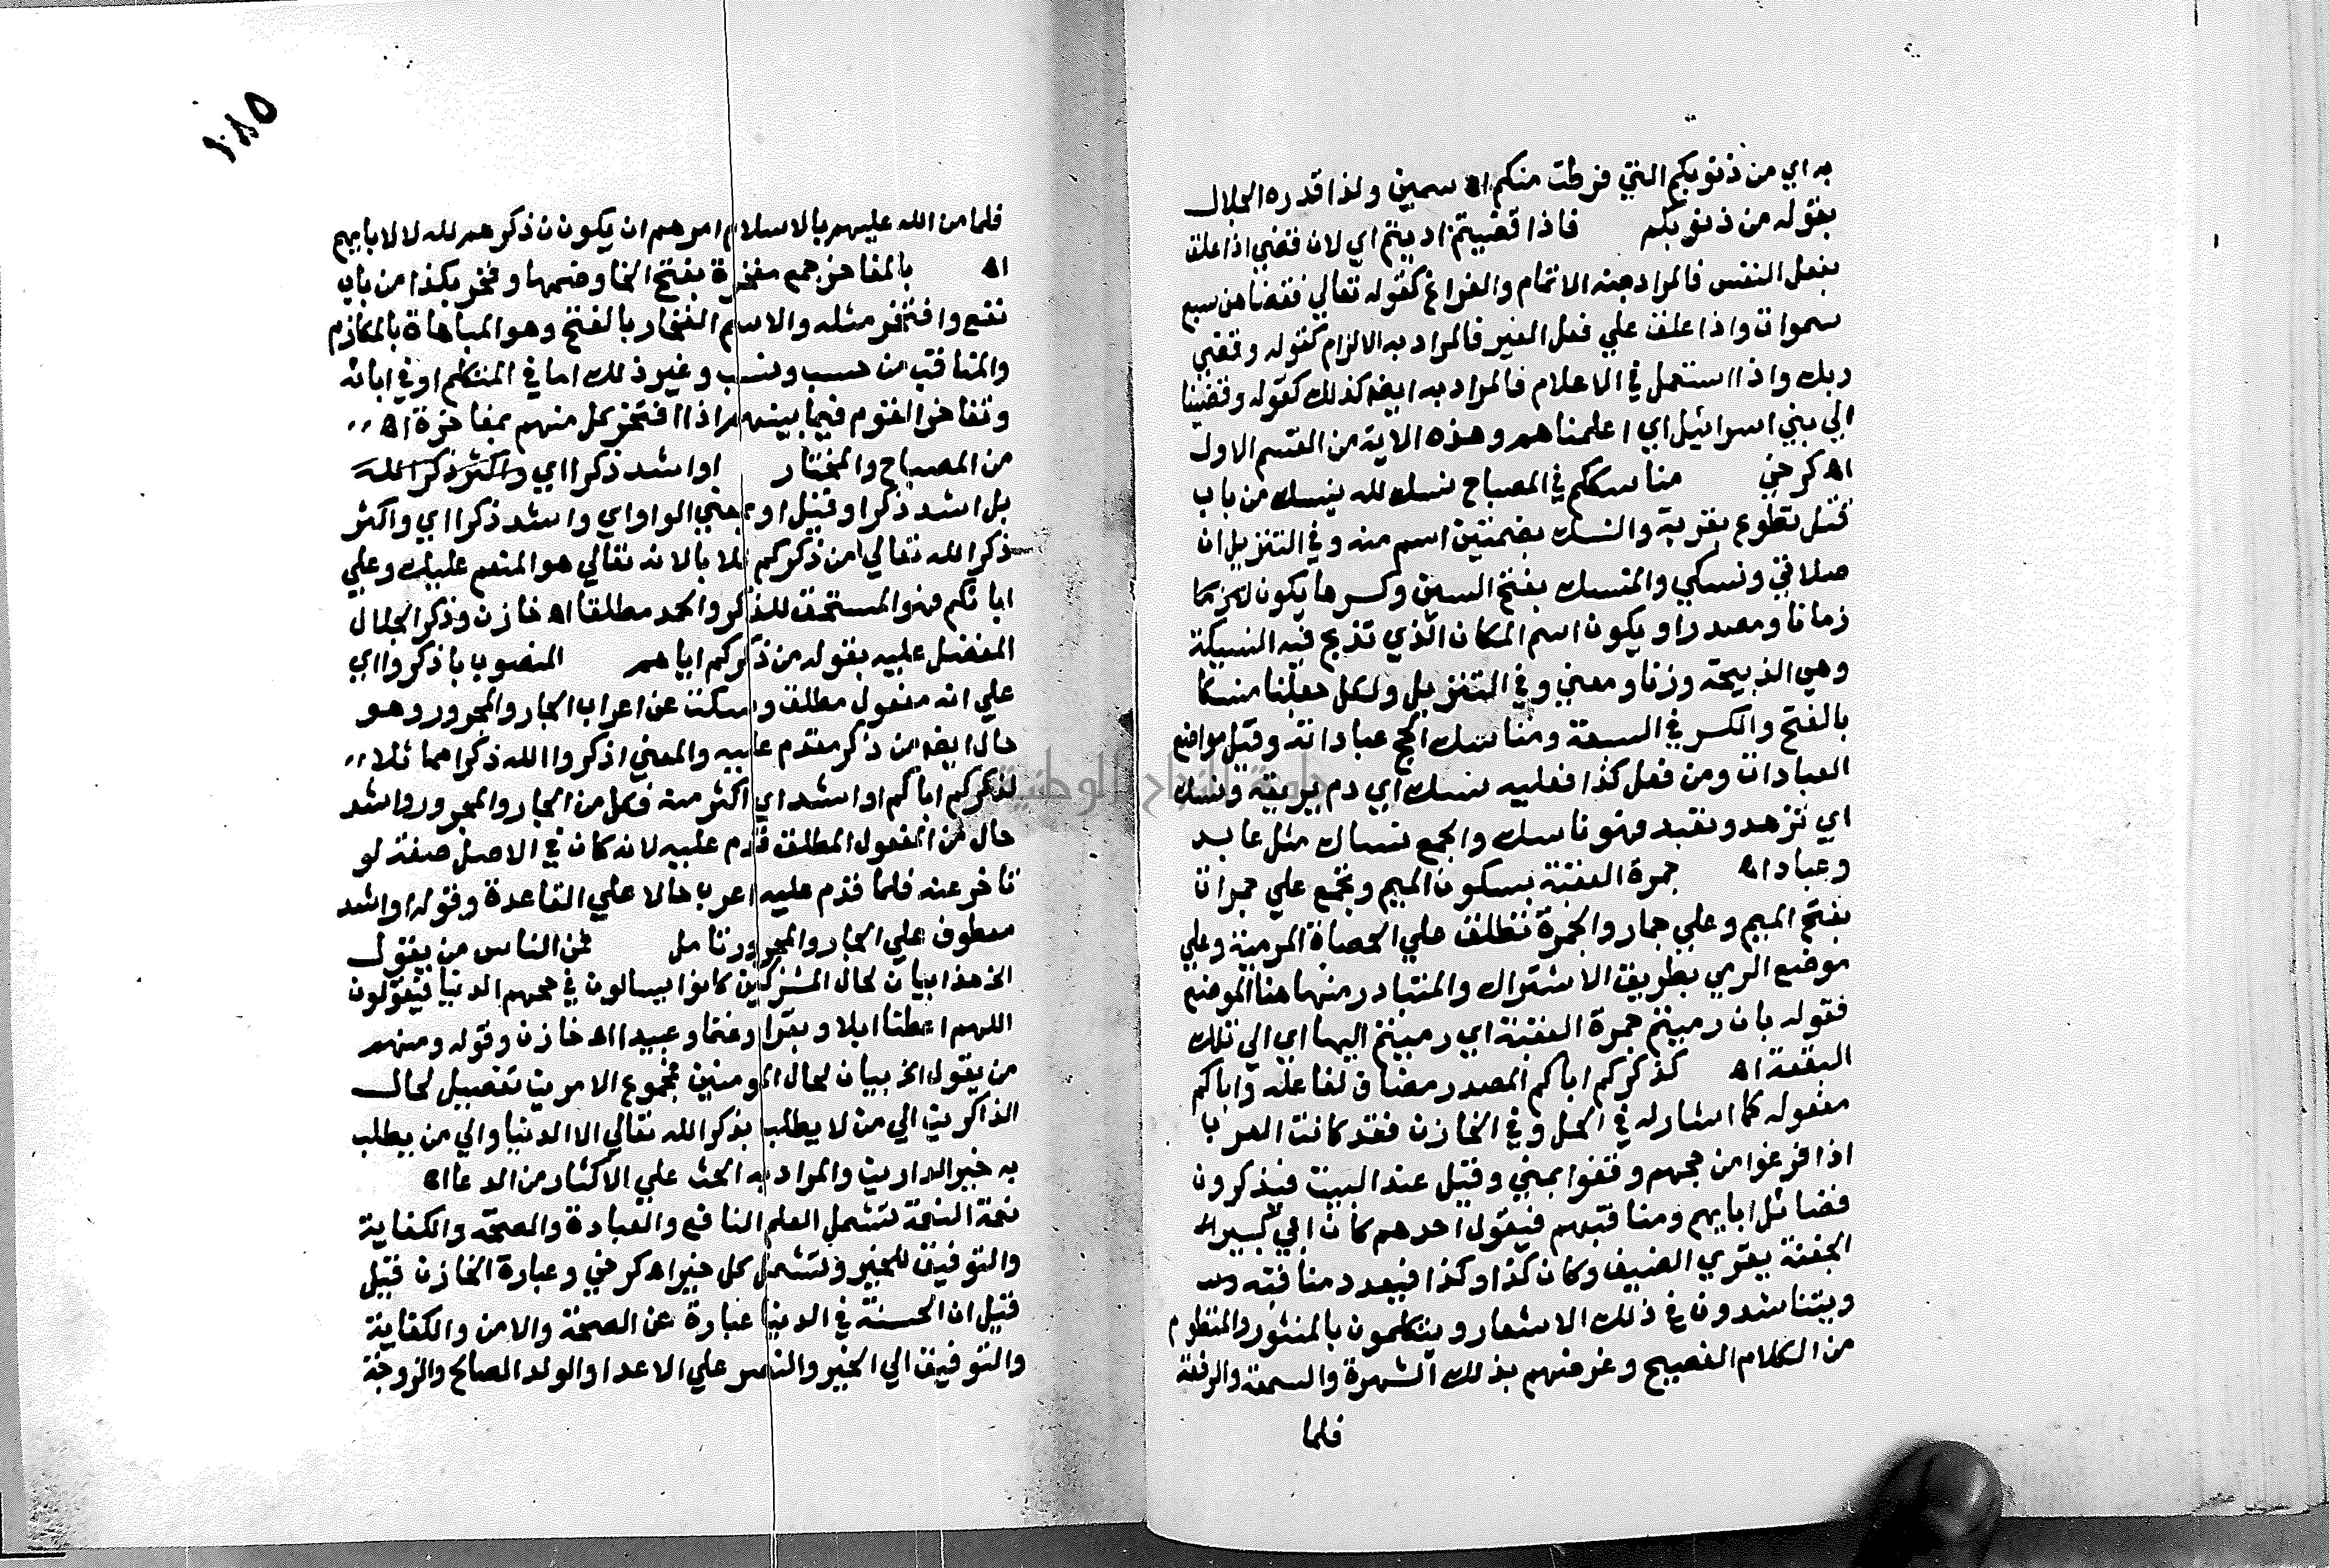 به اي من ذنوبكم التي فرطت منكم اه سمين ولذا قدره الجلال
بقوله من ذنوبكم فاذا قضيتم اديتم اي لان قضي اذا علق
بفعل النفس فالمراد منه الاتمام والفراغ كقوله تعالي فقضاهن سبع
سموات واذا علق علي فعل الغير فالمراد به الالزام كقوله وقضي
ربك واذا استعمل في الاعلام فالمراد به ايضا كذلك كقوله وقضينا
الي بني اسرائيل اي اعلمناهم وهذه الاية من القسم الاول
اه كرخي مناسككم في المصباح نسك لله ينسك من باب
قتل تطوع بقربة والنسك بضمتين اسم منه وفي التنزيل ان
صلاتي ونسكي والمنسك بفتح السين وكسرها يكون
زمانا ومصدرا ويكون اسم المكان الذي تذبح فيه النسيكة
وهي الذبيحة وزنا ومعني وفي التنزيل ولكل جعلنا منسكا
بالفتح والكسر في السبعة ومناسك الحج عباداته وقيل مواضع
العبادات ومن فعل كذا فعليه نسك اي دم يريقه ونسك
اي تزهد وتعبد فهو ناسك والجمع نساك مثل عابد
وعباد اه جمرة العقبة بسكون الميم وتجمع علي جمرات
بفتح الميم وعلي جمار والجمرة تطلق علي الحصاة المرمية وعلي
موضع الرمي بطريق الاشتراك والمتبادر منها هنا الموضع
فقوله بان رميتم جمرة العقبة اي رميتم اليها اي الي تلك
البقعة اه كذكركم اباكم المصدر مضاف لفاعله واباكم
مفعوله كما اشار له في الحل وفي الخازن فقد كانت العرب
اذا فرغوا من حجهم وقفوا بمني وقيل عند البيت فيذكرون
فضائل ابايهم ومناقبهم فيقول احدهم كان ابي كبير
الجفنة يقري الضيف وكان كذا وكذا فيعدد مناقبه
ويتناشدون في ذلك الاشعار ويتكلمون بالمنثور والمنظوم
من الكلام الفصيح وغرضهم بذلك الشهرة والسمعة والرفعة
فلما
فلما من الله عليهم بالاسلام امرهم ان يكون ذكرهم لله لا لابايهم
اه بالمفاخر جمع مفخرة بفتح الخا وضمها وفخر بكذا من باب
نفع وافتخر مثله والاسم الفخار بالفتح وهو المباهاة بالمكارم
والمناقب من حسب ونسب وغير ذلك اما في المتكلم او في ابائه
وتفاخر القوم فيما بينهم اذا افتخر كل منهم بمفاخره اه
من المصباح والمختار او اشد ذكرا اي واكثر ذكر الله
بل اشد ذكرا وقيل او بمعني الواو اي واشد ذكرا اي واكثر
ذكر الله تعالي من ذكركم للابا لانه تعالي هو المنعم عليك وعلي
ابائكم فهو المستحق للذكر والحمد مطلقا اه خازن وذكر الجلال
المفضل عليه بقوله من ذكركم اياهم المنصوب باذكروا اي
علي انه مفعول مطلق وسكت عن اعراب الجار والمجرور وهو
حال ايضا من ذكر مقدم عليه والمعني اذكروا الله ذكرا مماثلا
لذكركم اباكم او اشد اي اكثر منه فكل من الجار والمجرور واشد
حال من المفعول المطلق قدم عليه لانه كان في الاصل صفة لو
تاخر عنه فلما قدم عليه اعرب حالا علي القاعدة وقوله او اشد
معطوف علي الجار والمجرور تامل فمن الناس من يقول
الخ هذا بيان لحال المشركين كانوا يسالون في حجهم الدنيا فيقولون
اللهم اعطنا ابلا وبقرا وغنما وعبيدا اه خازن وقوله ومنهم
من يقول الخ بيان لحال المومنين فمجموع الامرين تفصيل لحال
الذاكرين الي من لا يطلب بذكر الله تعالي الا الدنيا والي من يطلب
به خير الدارين والمراد به الحث علي الاكثار من الدعا اه
نعمة النعمة تشمل العلم النافع والعبادة والصحة والكفاية
والتوفيق للخير وتشمل كل خير اه كرخي وعبارة الخازن قيل
قيل ان الحسنة في الدنيا عبارة عن الصحة والامن والكفاية
والتوفيق الي الخير والنصر علي الاعدا والولد الصالح والزوجة
جامعة النجاح الوطنية